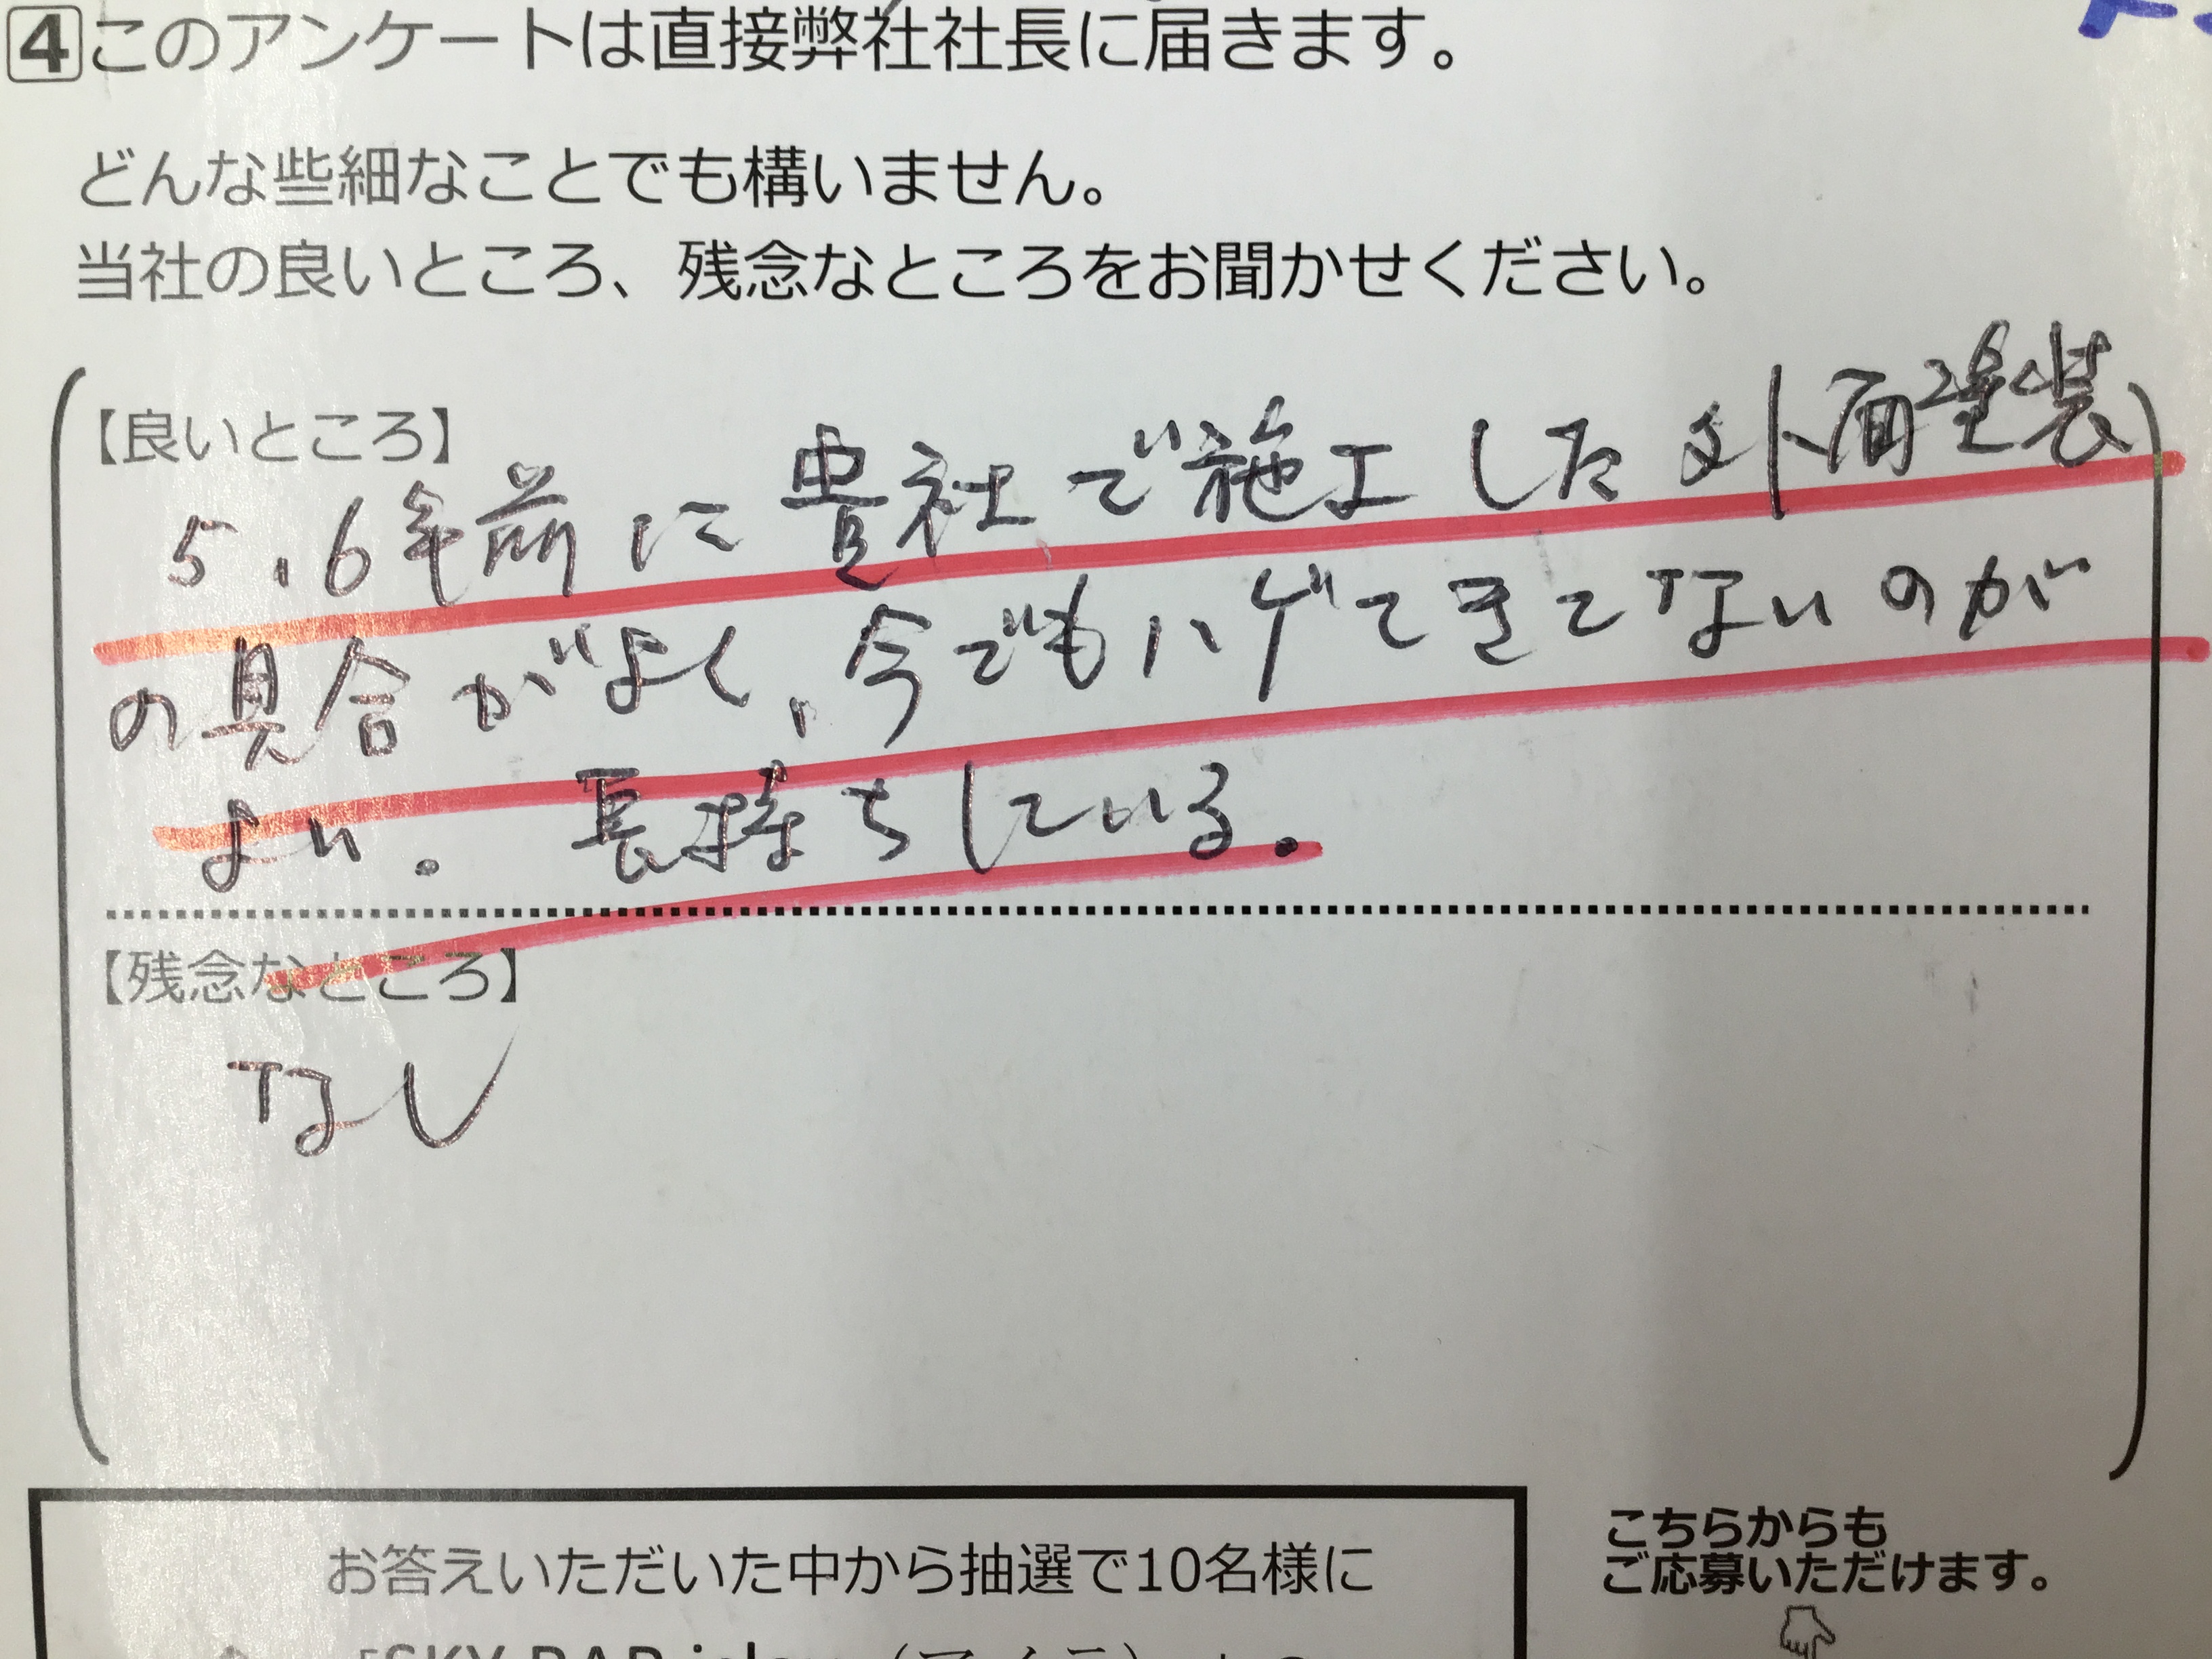 4 このアンケートは直接弊社社長に届きます。
どんな些細なことでも構いません。
当社の良いところ、残念なところをお聞かせください。
【良いところ】
5、6年前に貴社で施工した外面塗装
の具合がよく、今でもハゲてきてないのが
よい。長持ちしている。
【残念なところ】
なし
お答えいただいた中から抽選で10名様に
こちらからも
ご応募いただけます。